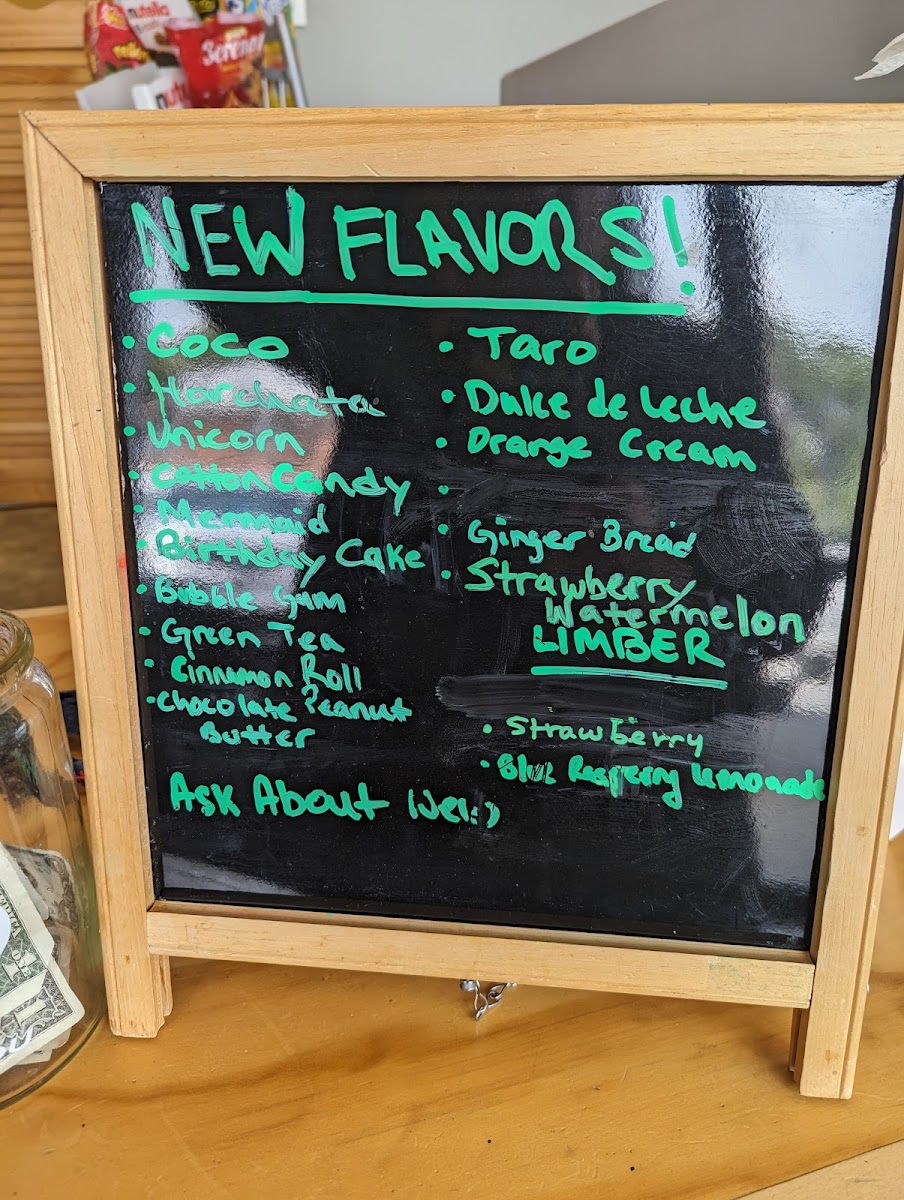 nutella
nutella
NEW FLAVORS!
• Coco
• Horchata
• Unicorn
• Cotton Candy
• Mermaid
• Birthday Cake
• Bubble Gum
• Green Tea
• Cinnamon Roll
• Chocolate Peanut
Butter
Ask About
• Taro
• Dulce de Leche
• Orange Cream
•
• Ginger Bread
• Strawberry
Watermelon
LIMBER
• Strawberry
• Lemonade